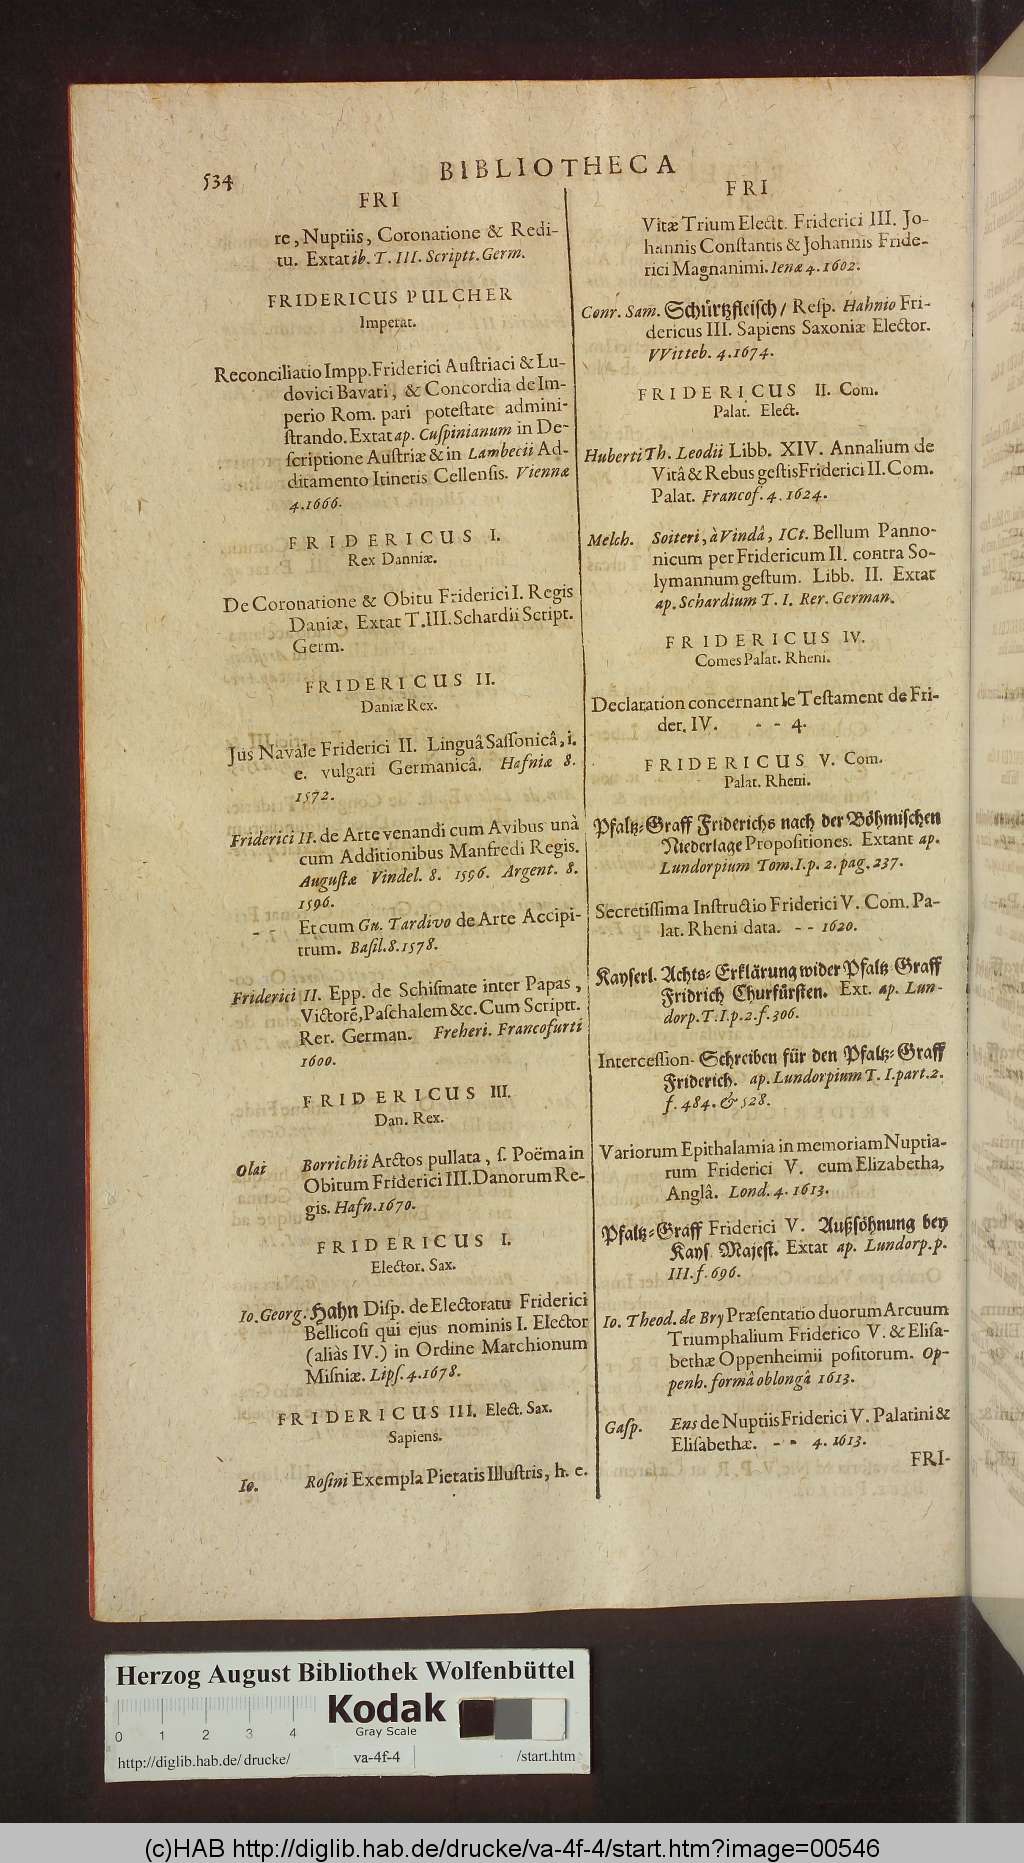 534
BIBLIOTHECA
FRI
re, Nuptiis, Coronatione & Redi-
tu. Extat ib. T. III. Scriptt. Germ.
FRIDERICUS PULCHER
Imperat.
Reconciliatio Impp. Friderici Auſtriaci & Lu-
dovici Bavari, & Concordia de Im-
perio Rom. pari poteſtate admini-
ſtrando. Extat ap. Cuſpinianum in De-
ſcriptione Auſtriæ & in Lambecii Ad-
ditamento Itineris Cellenſis. Viennæ
4. 1666.
FRIDERICUS I.
Rex Danniæ.
De Coronatione & Obitu Friderici I. Regis
Daniæ. Extat T. III. Schardii Script.
Germ.
FRIDERICUS II.
Daniæ Rex.
Jus Navale Friderici II. Linguâ Saſſonicâ, i.
e. vulgari Germanicâ. Hafniæ 8.
1572.
Friderici II. de Arte venandi cum Avibus unà
cum Additionibus Manfredi Regis.
Auguſtæ Vindel. 8. 1596. Argent. 8.
1596.
- - Et cum Gu. Tardivo de Arte Accipi-
trum. Baſil. 8. 1578.
Friderici II. Epp. de Schiſmate inter Papas,
Victorẽ, Paſchalem &c. Cum Scriptt.
Rer. German. Freheri. Francofurti
1600.
FRIDERICUS III.
Dan. Rex.
Olai Borrichii Arctos pullata, ſ. Poëma in
Obitum Friderici III. Danorum Re-
gis. Hafn. 1670.
FRIDERICUS I.
Elector. Sax.
Io. Georg. Hahn Diſp. de Electoratu Friderici
Bellicoſi qui ejus nominis I. Elector
(aliàs IV.) in Ordine Marchionum
Miſniæ. Lipſ. 4. 1678.
FRIDERICUS III. Elect. Sax.
Sapiens.
Io. Roſini Exempla Pietatis Illuſtris, h. e.
FRI
Vitæ Trium Electt. Friderici III. Jo-
hannis Conſtantis & Johannis Fride-
rici Magnanimi. Ienæ 4. 1602.
Conr. Sam. Schürtzfleiſch / Reſp. Hahnio Fri-
dericus III. Sapiens Saxoniæ Elector.
VVitteb. 4. 1674.
FRIDERICUS II. Com.
Palat. Elect.
Huberti Th. Leodii Libb. XIV. Annalium de
Vitâ & Rebus geſtis Friderici II. Com.
Palat. Francof. 4. 1624.
Melch. Soiteri, à Vindâ, ICt. Bellum Panno-
nicum per Fridericum II. contra So-
lymannum geſtum. Libb. II. Extat
ap. Schardium T. I. Rer. German.
FRIDERICUS IV.
Comes Palat. Rheni.
Declaration concernant le Teſtament de Fri-
der. IV. - - 4.
FRIDERICUS V. Com.
Palat. Rheni.
Pfaltz-Graff Friderichs nach der Böhmiſchen
Niederlage Propoſitiones. Extant ap.
Lundorpium Tom. I. p. 2. pag. 237.
Secretiſſima Inſtructio Friderici V. Com. Pa-
lat. Rheni data. - - 1620.
Kayſerl. Achts-Erklärung wider Pfaltz-Graff
Fridrich Churfürſten. Ext. ap. Lun-
dorp. T. I. p. 2. f. 306.
Interceſſion-Schreiben für den Pfaltz-Graff
Friderich. ap. Lundorpium T. I. part. 2.
f. 484. & 528.
Variorum Epithalamia in memoriam Nuptia-
rum Friderici V. cum Elizabetha,
Anglâ. Lond. 4. 1613.
Pfaltz-Graff Friderici V. Außſöhnung bey
Kayſ. Majeſt. Extat ap. Lundorp. p.
III. f. 696.
Io. Theod. de Bry Præſentatio duorum Arcuum
Triumphalium Friderico V. & Eliſa-
bethæ Oppenheimii poſitorum. Op-
penh. formâ oblongâ 1613.
Gaſp. Ens de Nuptiis Friderici V. Palatini &
Eliſabethæ. - - 4. 1613.
FRI-
Herzog August Bibliothek Wolfenbüttel
Kodak
Gray Scale
0 1 2 3 4
http://diglib.hab.de/drucke/ va-4f-4 /start.htm
(c)HAB http://diglib.hab.de/drucke/va-4f-4/start.htm?image=00546